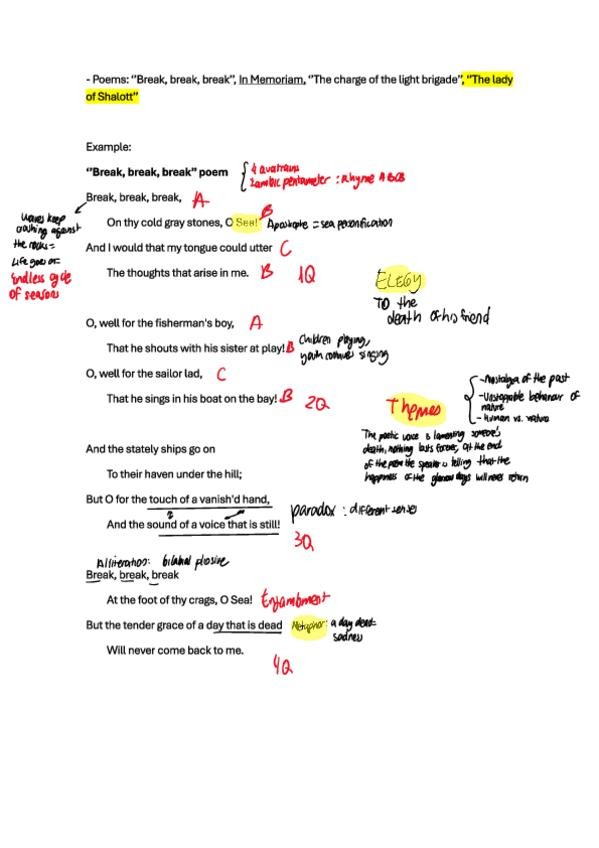 - Poems: "Break, break, break", In Memoriam, "The charge of the light brigade", "The lady
of Shalott"
Example:
"Break, break, break" poem
4 quatrains
Iambic pentameter : Rhyme ABCB
Break, break, break, A
Waves keep
crashing against
the rocks =
Life goes on
Endless cycle
of seasons
On thy cold gray stones, O Sea! B Apostrophe = sea personification
And I would that my tongue could utter C
The thoughts that arise in me. B 1Q
ELEGY
TO the
death of his friend
O, well for the fisherman's boy, A
That he shouts with his sister at play! B Children playing,
youth continues singing
O, well for the sailor lad, C
That he sings in his boat on the bay! B 2Q
Themes
-Nostalgia of the past
-Unstoppable behaviour of
nature
-Human vs. nature
The poetic voice is lamenting someone's
death, nothing lasts forever, at the end
of the poem the speaker is telling that the
happiness of the glorious days will never return
And the stately ships go on
To their haven under the hill;
But O for the touch of a vanish'd hand,
And the sound of a voice that is still!
paradox : different senses
3Q
Alliteration: bilabial plosive
Break, break, break
At the foot of thy crags, O Sea! Enjambment
But the tender grace of a day that is dead Metaphor: a day dead=
sadness
Will never come back to me.
4Q